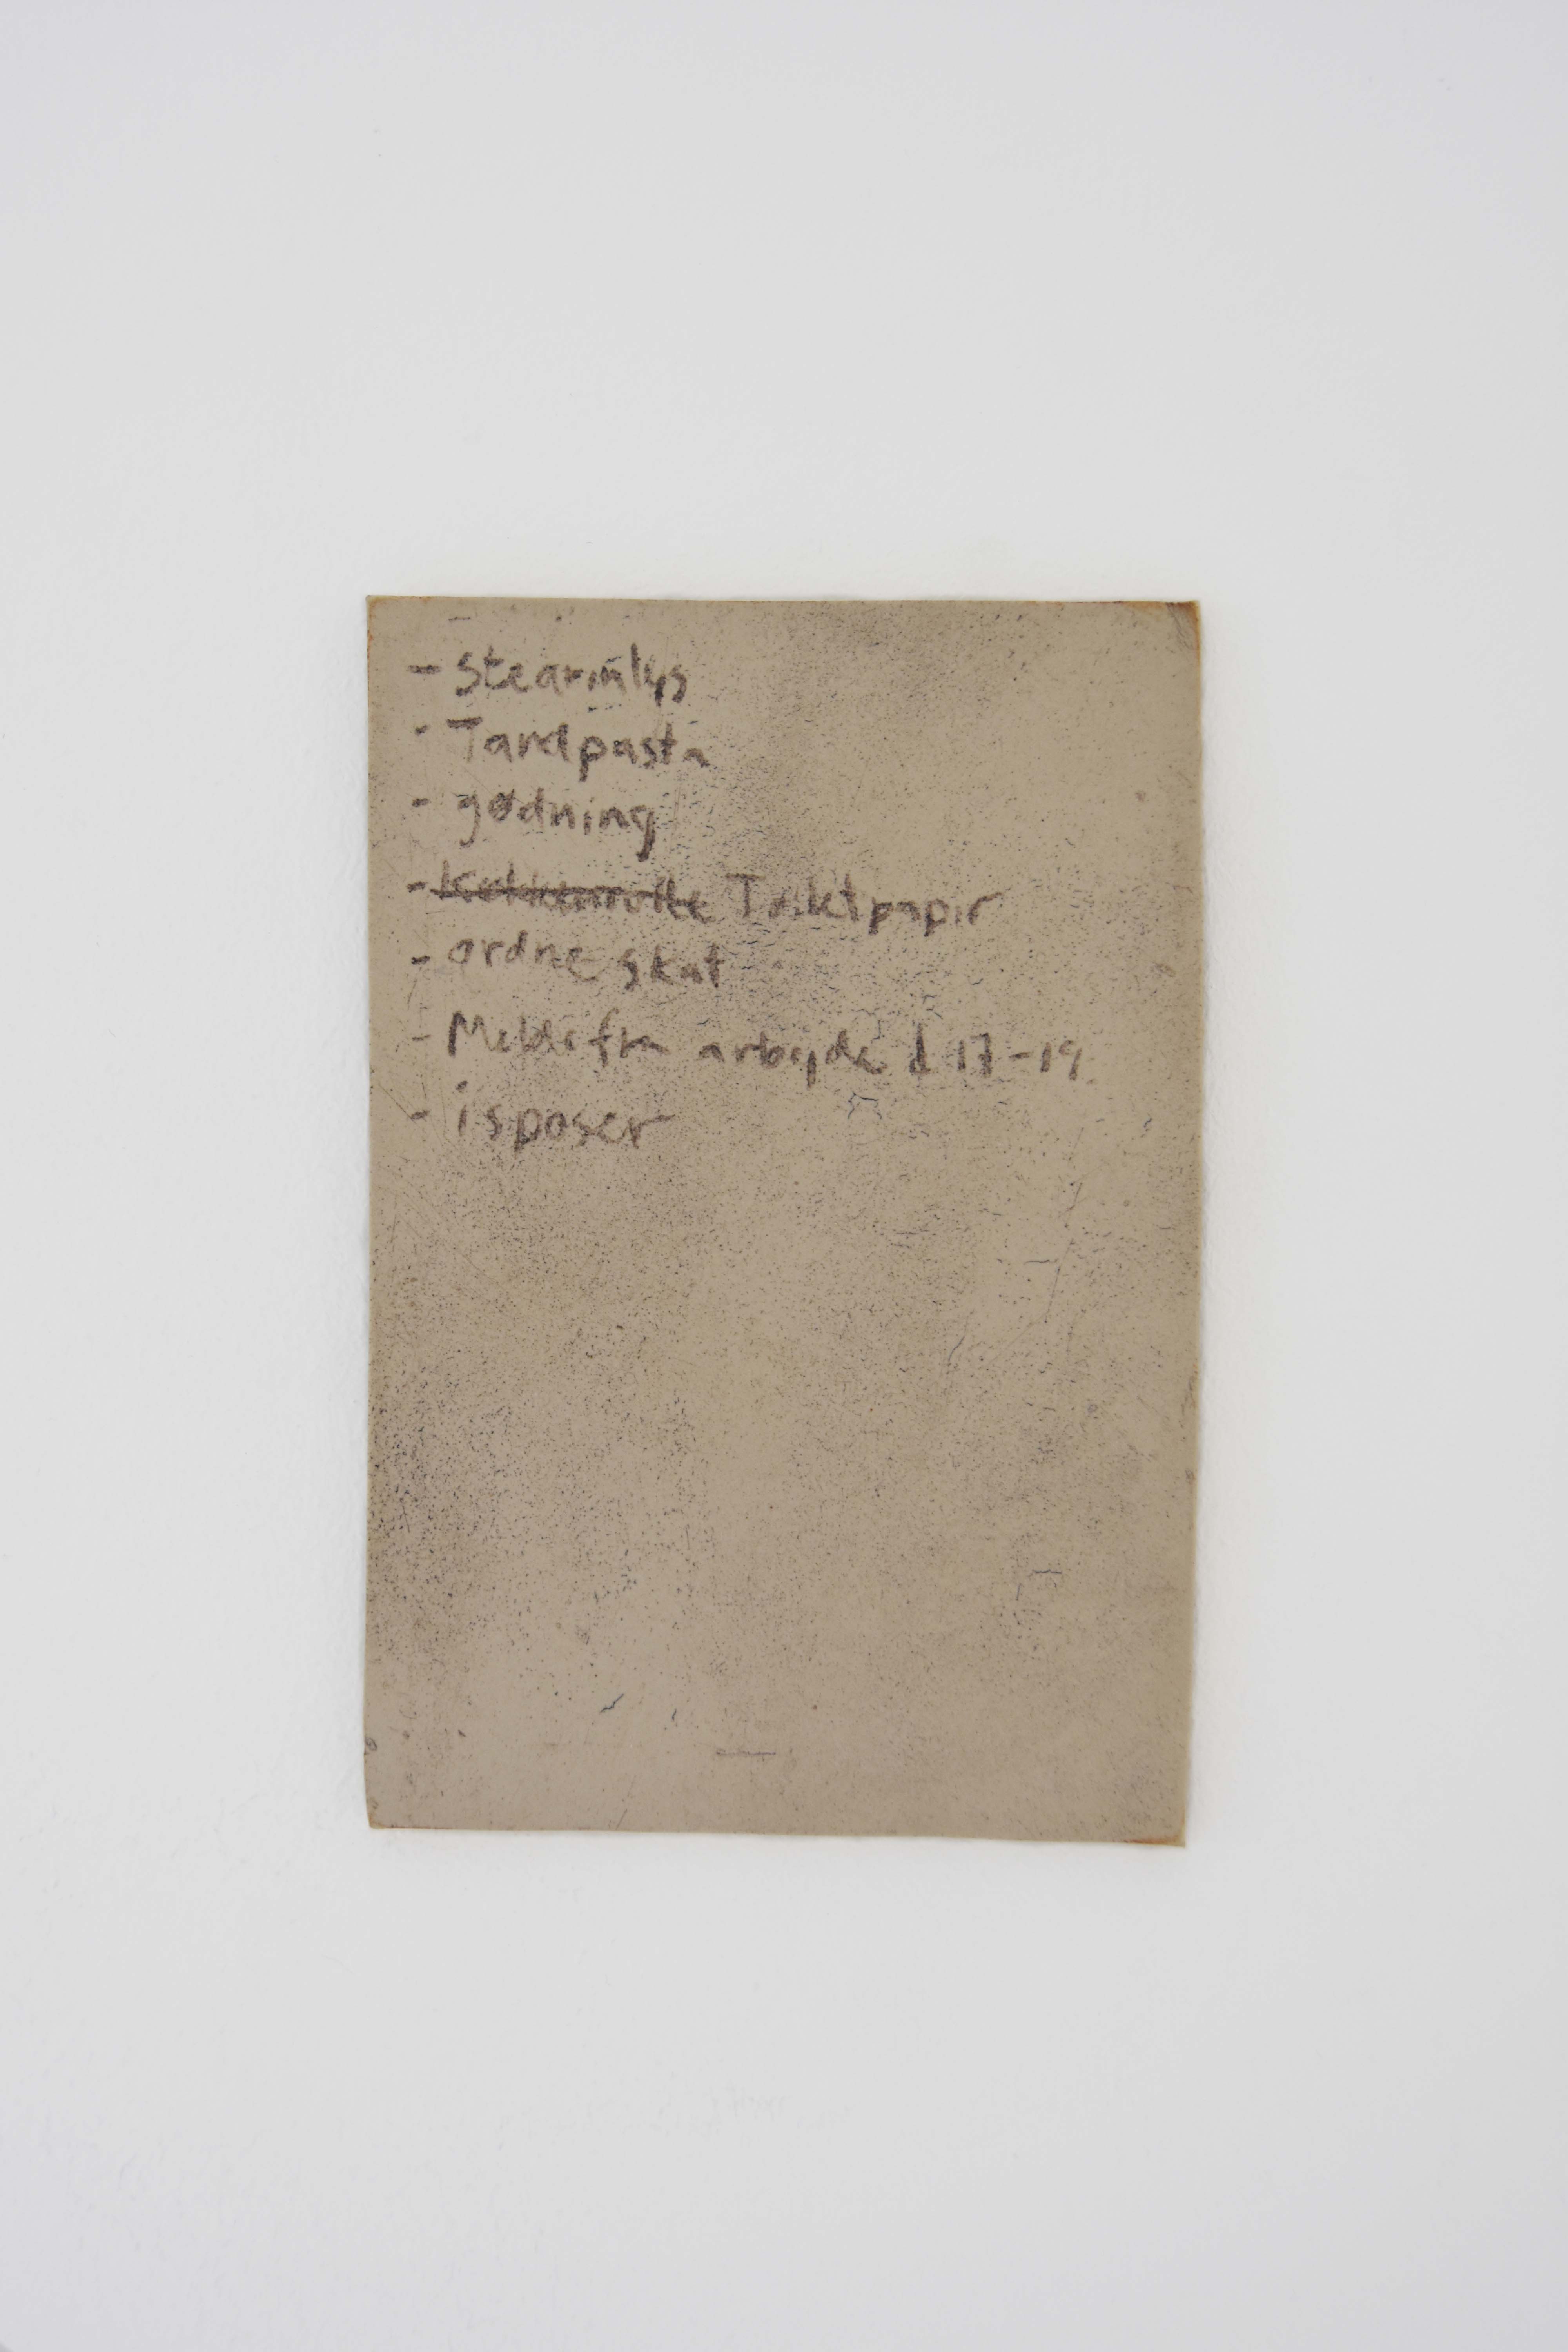 - stearinlys
- Tandpasta
- gødning
- Køkkenrulle Toiletpapir
- ordne skat
- Melde fra arbejde d 17-19
- isposer